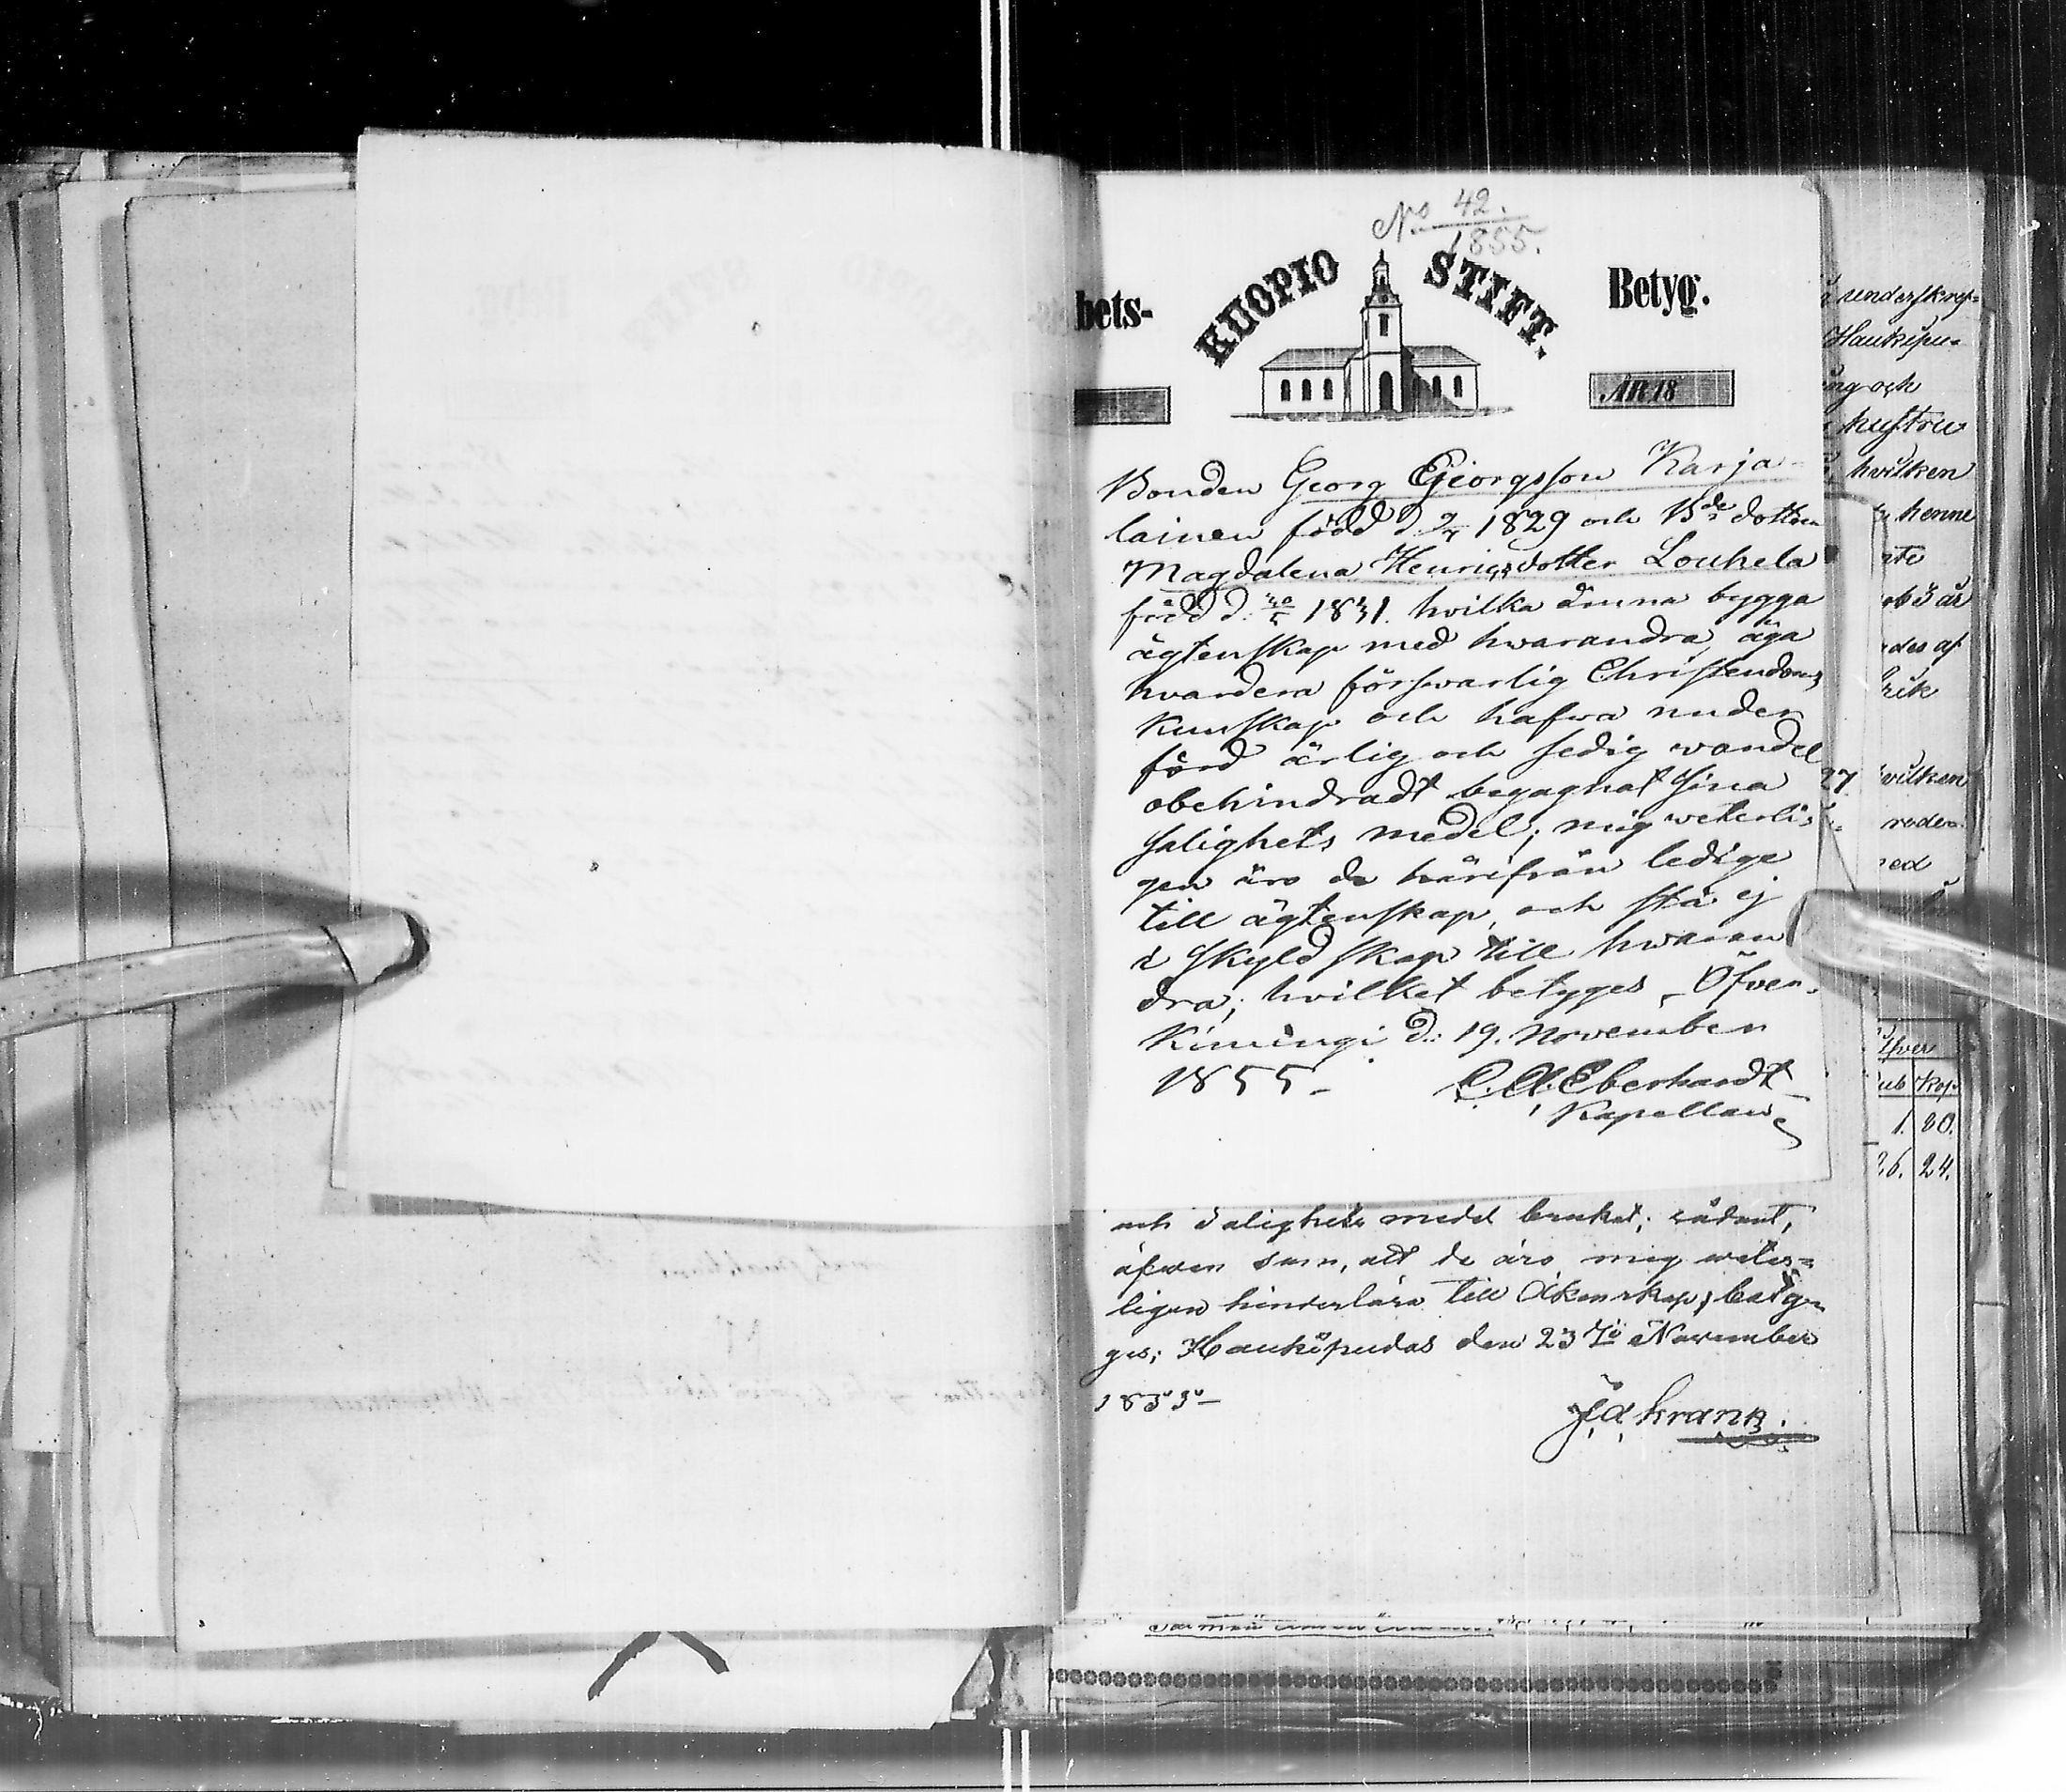 No 42.
1855.
bets-
KUOPIO STIFT.
Betyg.
ÅR 18
Bonden Georg Georgsson Karja-
lainen född d 9/4 1829 och Bde dottren
Magdalena Henricsdotter Louhela
född d. 1831. hvilka ämna bygga
ägtenskap med hwarandra, äga
hvardera förswarlig Christendoms
kunskap och hafwa under
förd ärlig och sedig wandel
obehindradt begagnat sina
salighets medel; mig weterli-
gen äro de härifrån ledige
till ägtenskap, och stå ej
i skyldskap till hwaran
dra; hvilket betyges, Öfver-
Kiimingi d: 19. November
1855-
C. A. Eberhardt
Kapellan
och salighets medel brukat; sådant,
äfven som, att de äro mig veter=
ligen hinderlösa till Äktenskap, bety
ges; Haukipudas den 23 November
1855-
J. A. Krank.
underskref=
Haukipu=
ing och
hustru
hvilken
henne
des af
rik
27
vilken
ub kop
1. 20.
26. 24.